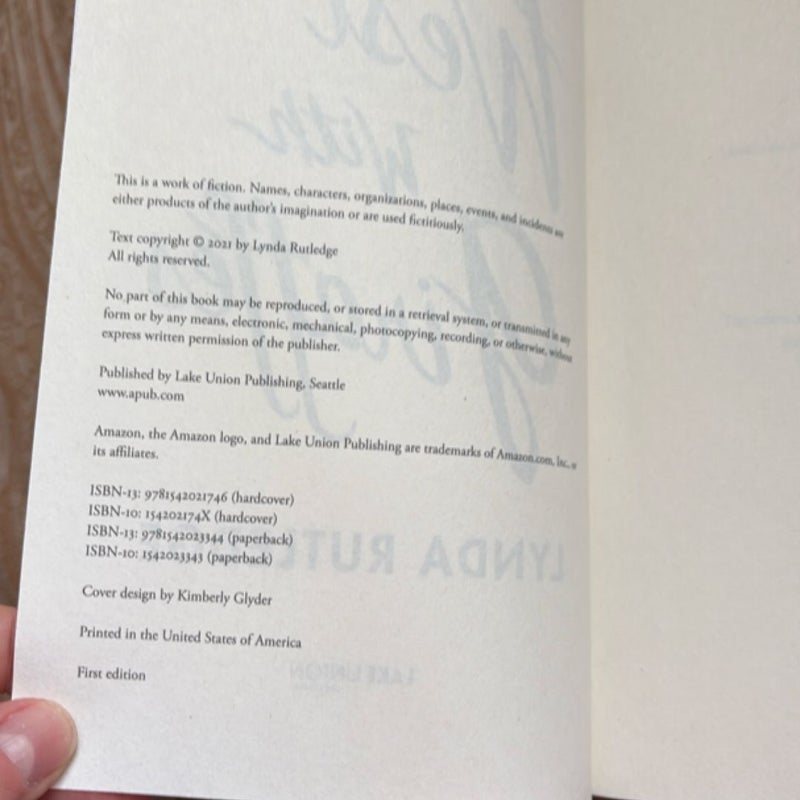 This is a work of fiction. Names, characters, organizations, places, events, and incidents are
either products of the author's imagination or are used fictitiously.
Text copyright © 2021 by Lynda Rutledge
All rights reserved.
No part of this book may be reproduced, or stored in a retrieval system, or transmitted in any
form or by any means, electronic, mechanical, photocopying, recording, or otherwise, without
express written permission of the publisher.
Published by Lake Union Publishing, Seattle
www.apub.com
Amazon, the Amazon logo, and Lake Union Publishing are trademarks of Amazon.com, Inc., or
its affiliates.
ISBN-13: 9781542021746 (hardcover)
ISBN-10: 154202174X (hardcover)
ISBN-13: 9781542023344 (paperback)
ISBN-10: 1542023343 (paperback)
Cover design by Kimberly Glyder
Printed in the United States of America
First edition